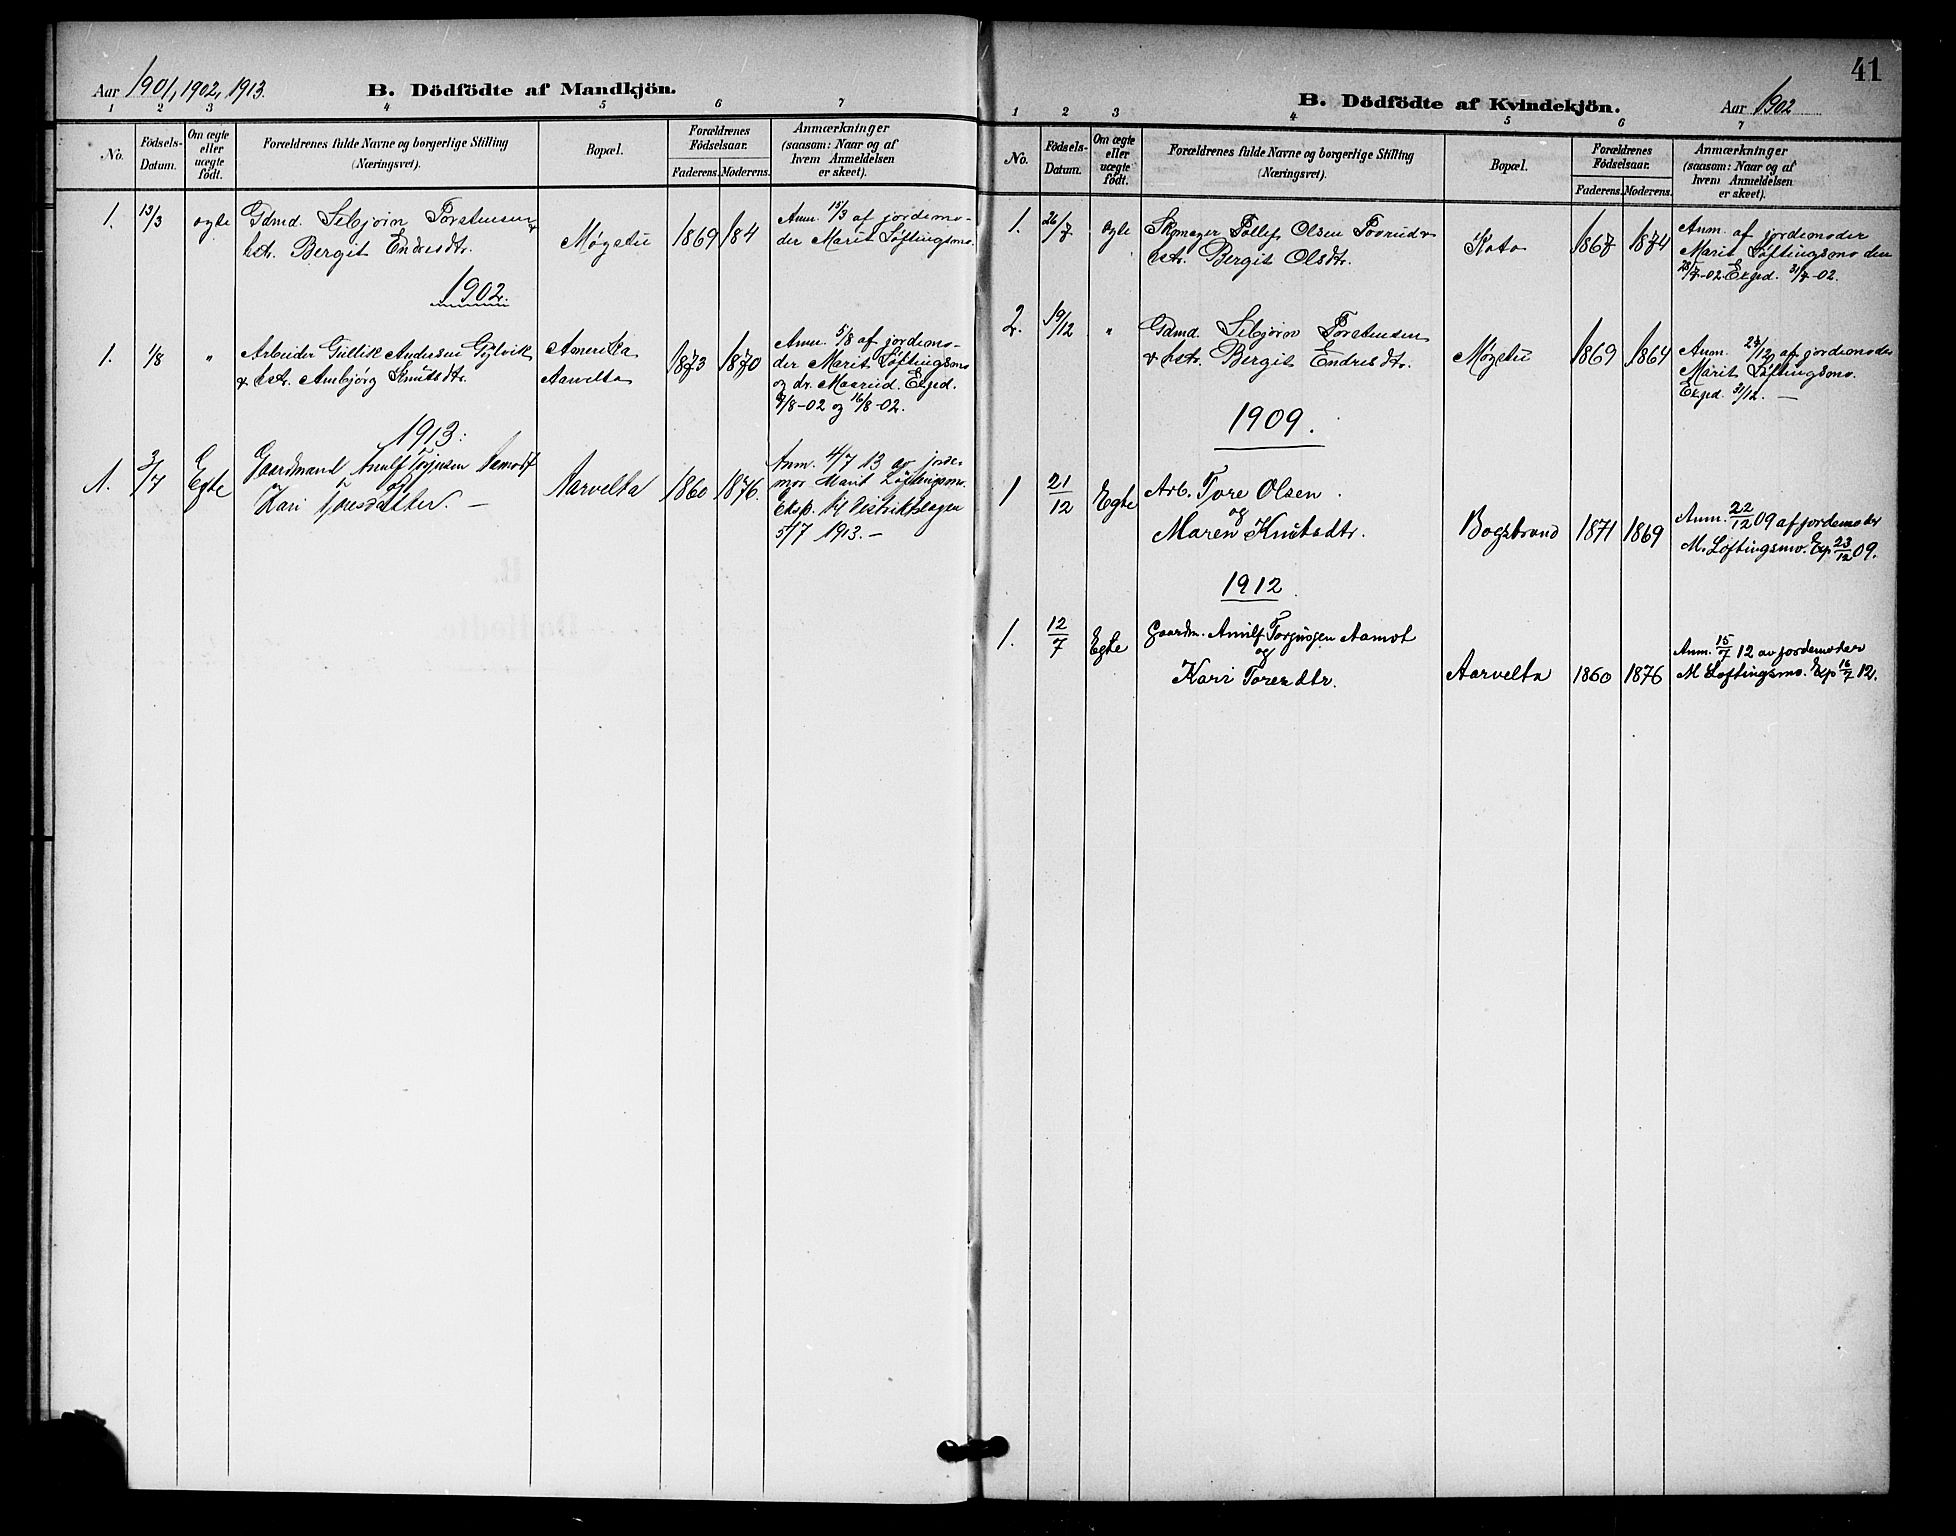 Aar 1901, 1902, 1913.
B. Dödfödte af Mandkjön.
1 2 3 4 5 6 7
No.
Födsels-Datum.
Om ægte eller uægte födt.
Forældrenes fulde Navne og borgerlige Stilling (Næringsvei).
Bopæl.
Forældrenes Födselsaar.
Faderens. Moderens.
Anmærkninger (saasom: Naar og af hvem Anmeldelsen er skeet).
1. 13/3 ægte Gdmd. Sebjörn Torstensen & Møgstu 1869 184 Anm. 15/3 af jordemo-
hstr. Bergit Endresdtr. der Marit Löftingsmo.
1902.
1. 1/8 " Arbeider Gullik Andersen Gylvik Amerika 1873 1870 Anm. 5/8 af jordemo-
& hstr. Ambjörg Knutsdtr. Aarvelta der Marit Löftingsmo
og dr. Maarud. Exped.
9/8-02 og 16/8-02.
1913.
1. 3/7 Egte Gaardmand Arnulf Torjusen Aamodt Aarvelta 1860 1876. Anm. 4/7 13 av jorde-
og mor Marit Löftingsmo.
Kari Toresdatter. — Eksp. til Distriktslægen
5/7 1913. —
41
B. Dödfödte af Kvindekjön.
Aar 1902
1 2 3 4 5 6 7
No.
Födsels-Datum.
Om ægte eller uægte födt.
Forældrenes fulde Navne og borgerlige Stilling (Næringsvei).
Bopæl.
Forældrenes Födselsaar.
Faderens. Moderens.
Anmærkninger (saasom: Naar og af hvem Anmeldelsen er skeet).
1. 26/7 ægte Skomager Tollef Olsen & 1867 1874 Anm. af jordemoder
hstr. Bergit Olsdtr. Marit Löftingsmo den
28/7-02. Exped. 31/7-02.
2. 19/12 " Gdmd. Sebjörn Torstensen Møgstu 1869 1864 Anm. 23/12 af jordemoder
& hstr. Bergit Endresdtr. Marit Löftingsmo.
Exped. 31/12. —
1909.
1 21/12 Egte Arb. Tore Olsen
og
Maren Knutsdtr. Bogstrand 1871 1869 Anm. 22/12 09 af jordemoder
M. Loftingsmo. Exp. 23/12 09.
1912
1. 12/7 Egte Gaardm. Arnulf Torjusjen Aamot
og
Kari Toresdtr. Aarvelta 1860 1876 Anm. 15/7 12 av jordemoder
M Loftingsmo. Exp 16/7 12.